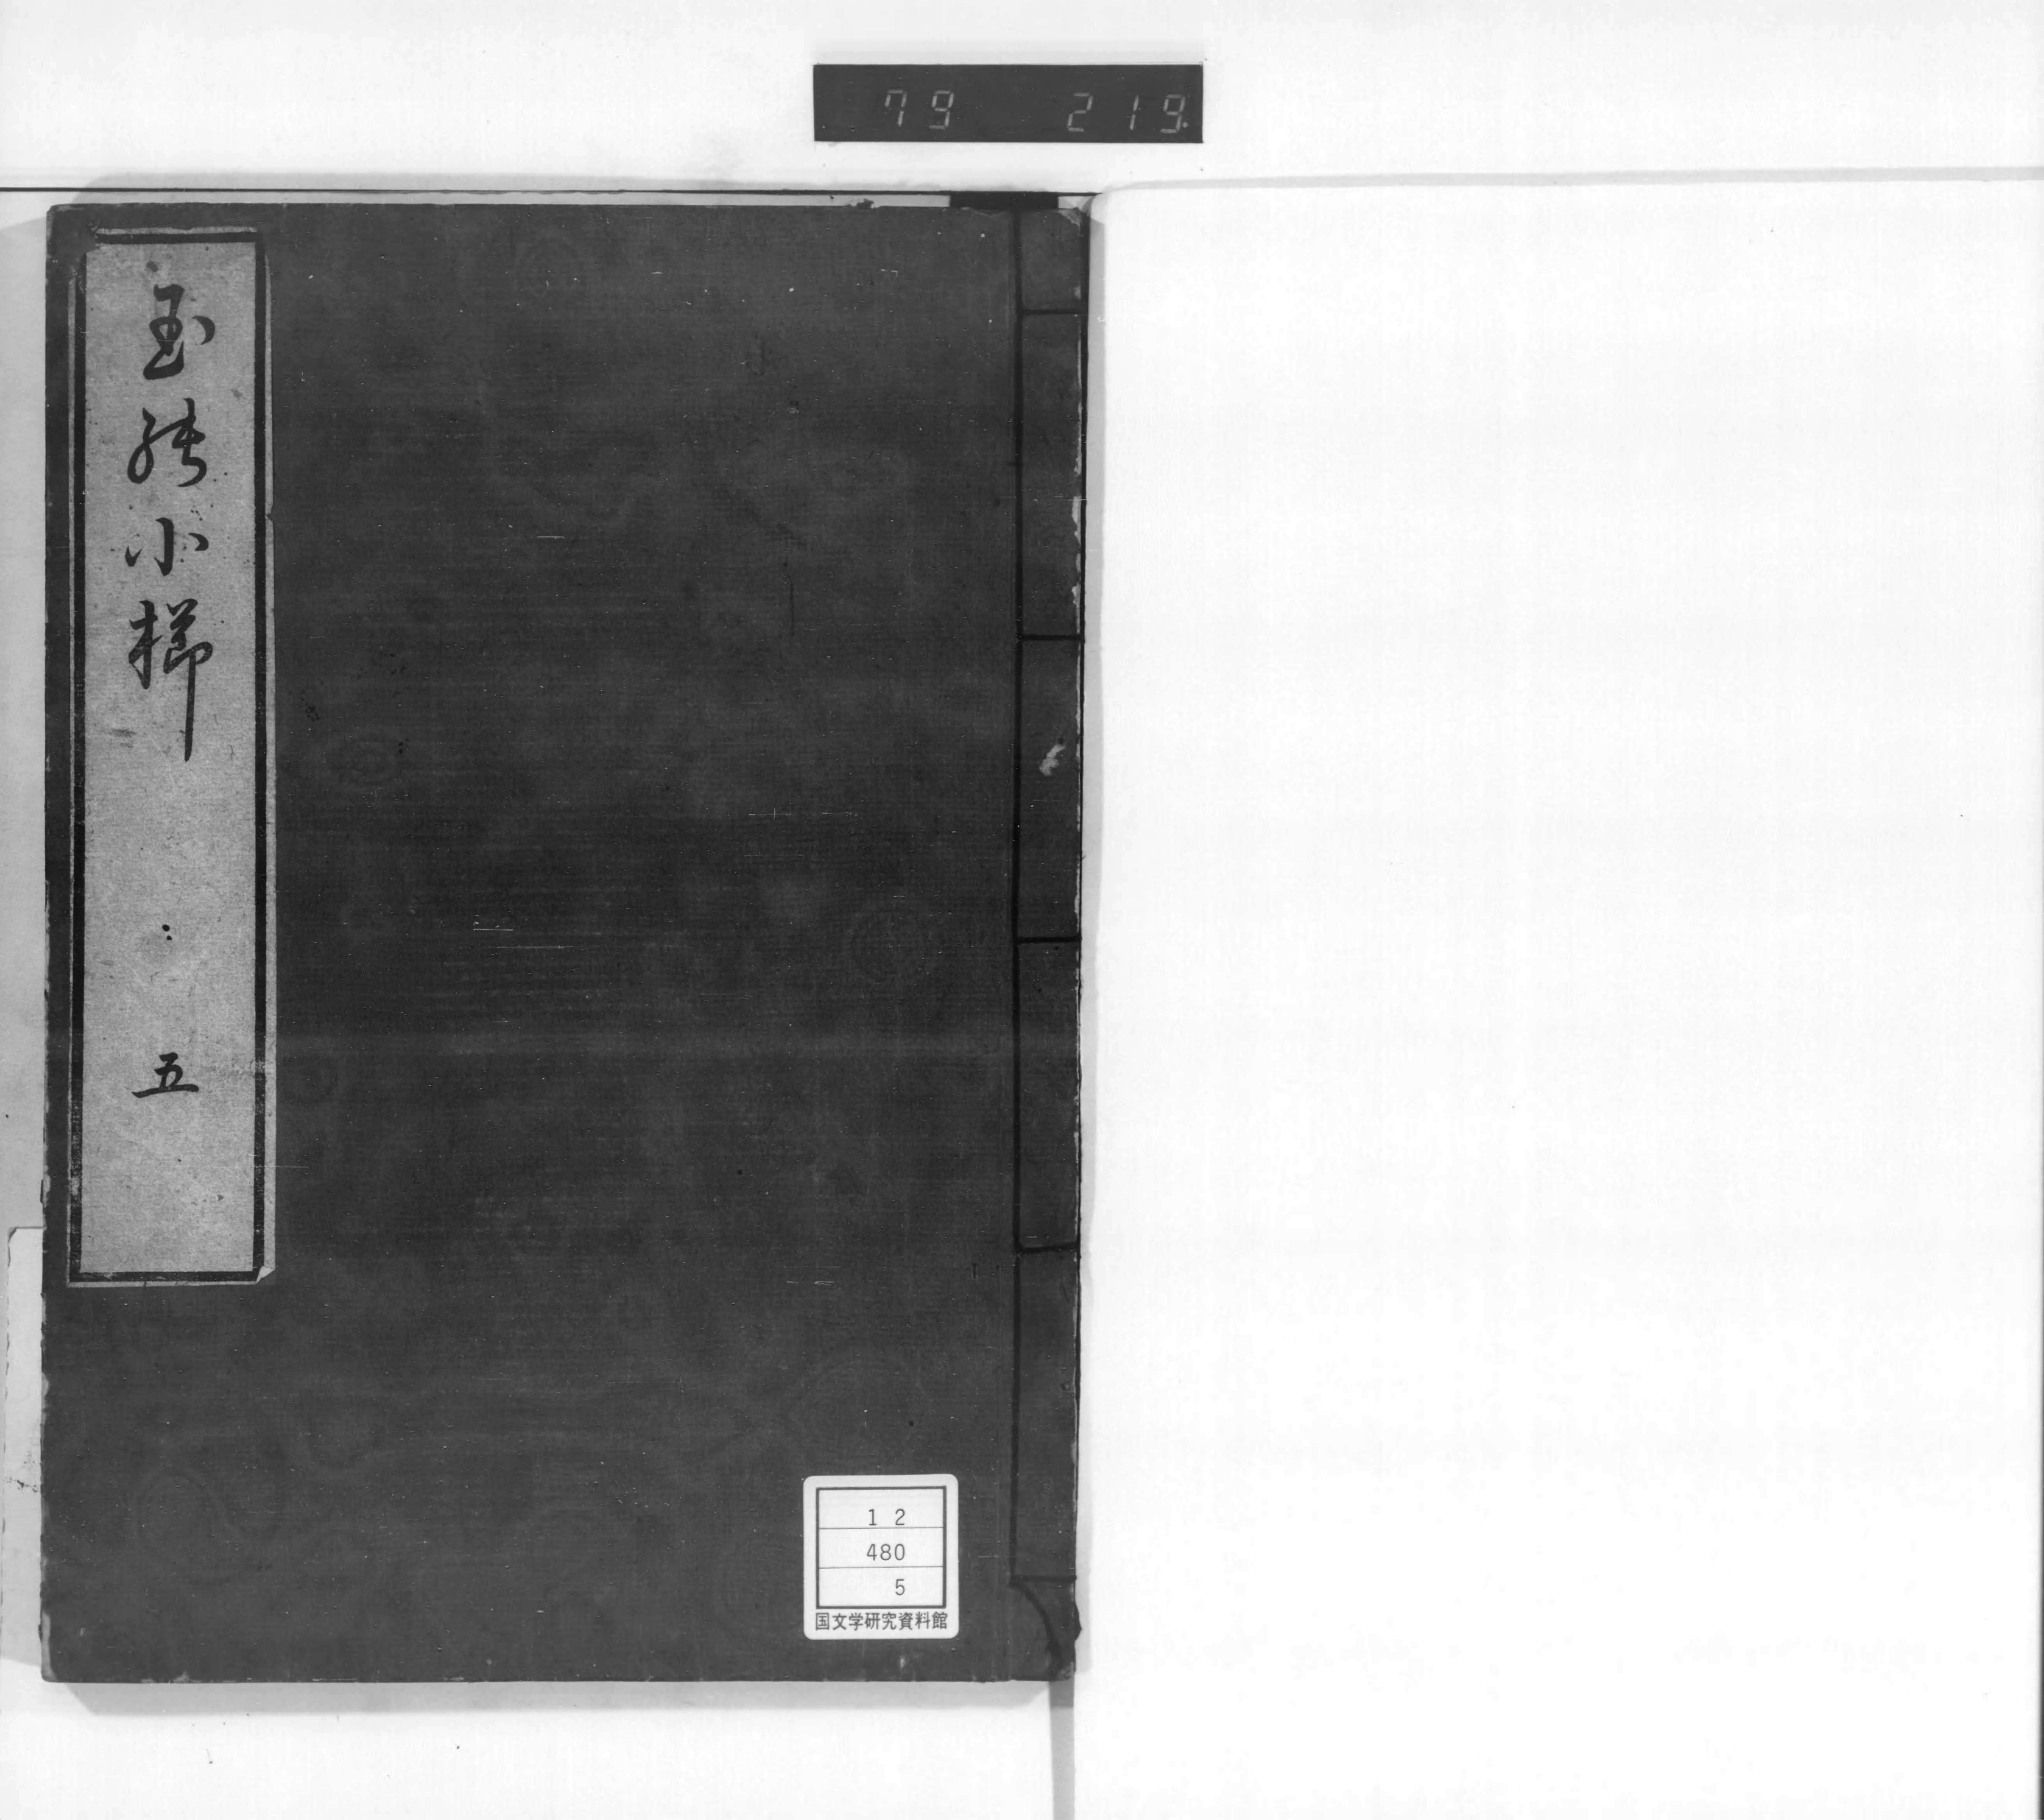 79 219
玉能小櫛 五
12
480
5
国文学研究資料館